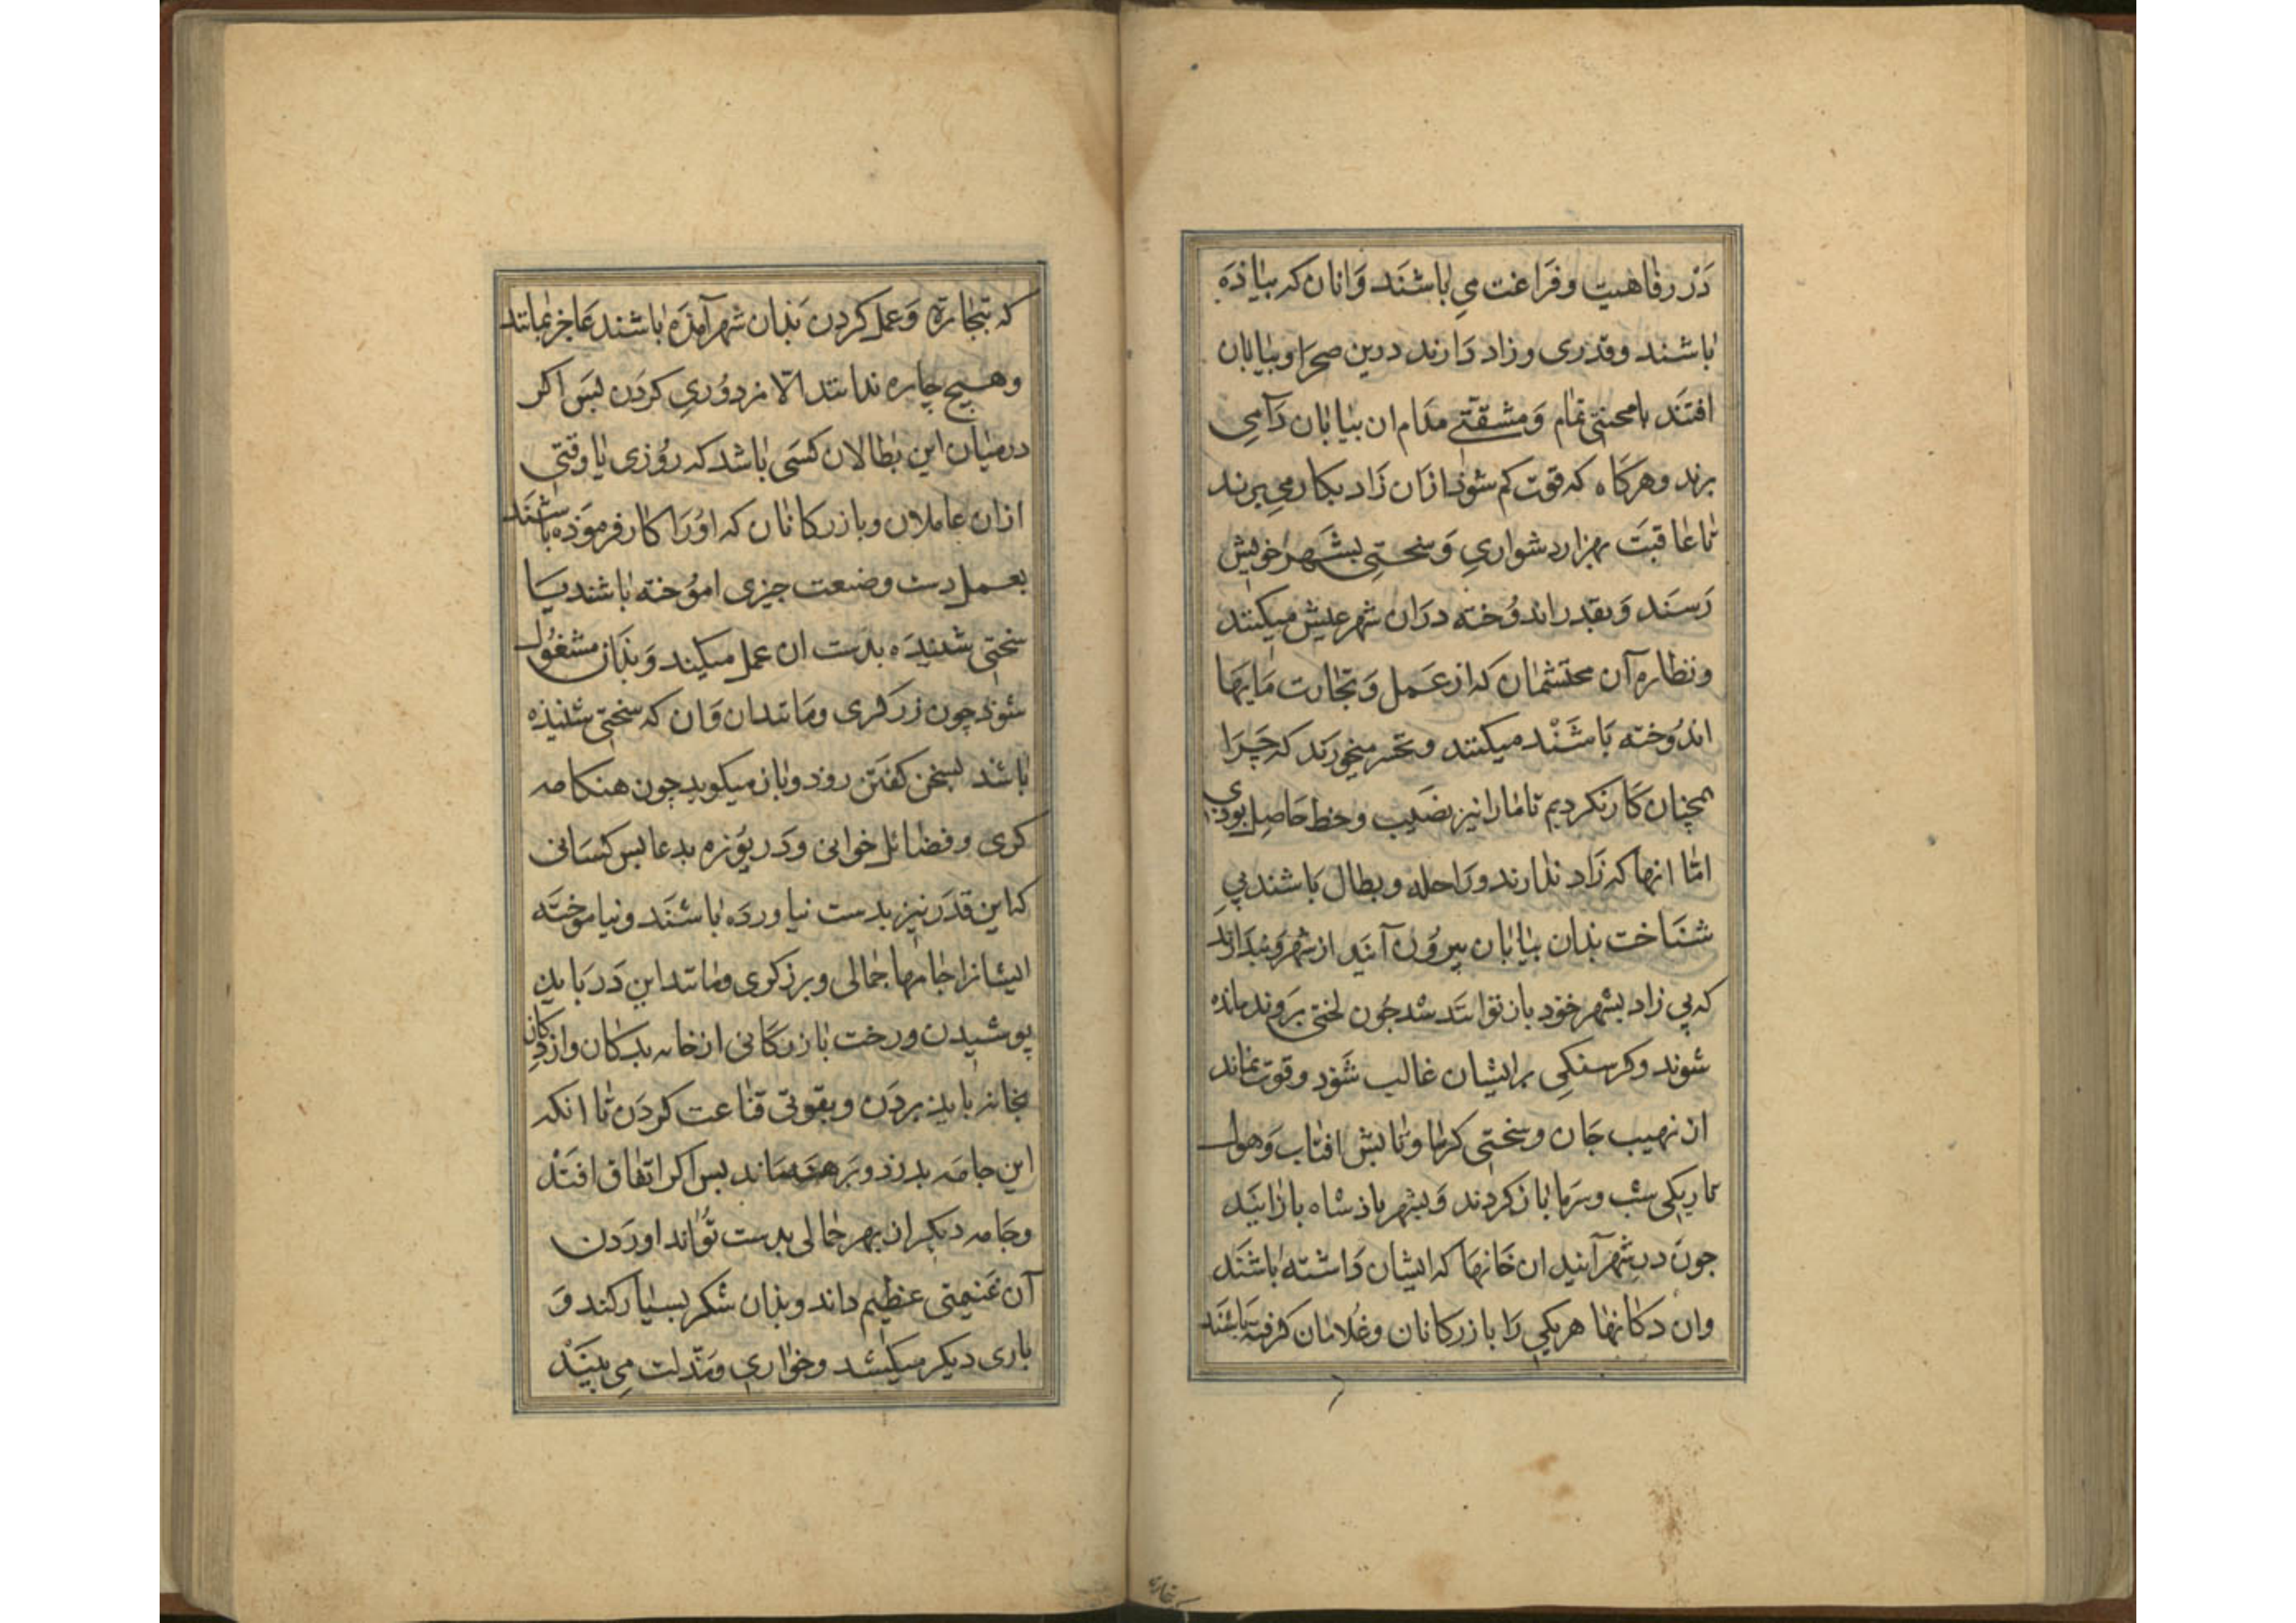 دَرْ رفاهیت وفَراغت می باشَند وَانان که بیاذه
باشند وقدری وزاد دَارند درین صحرَا وبیابان
افتَند بامحنتی تمام وَمشقتی مدام ان بیابان رَامی
برند وهرکاه که قوت کم شوذ ازان زَاد بکار می برند
تاعاقبَت بهزار دشواری وَسختی بشهر خویش
رَسَند وَبقدر اندوُخته درَان شهر عیش میکنند
ونظاره آن محتشمان که از عَمل وَتجارت مَایها
اندوُخته بَاشَنْد میکنند وتحسر میخورَند که چَرَا
همچنان کَار نکردیم تامارا نیز نصیب وحظ حَاصِل بودی
امّا انها که زَاد ندارند ورَاحله وبطال بَاشند بی
شنَاخت بذان بیابان بیروُن آیَند از شهر وبندارند
که بی زاد بشهر خوذ باز توانَند شد جُون لختی برَوند مانده
شوند وکرسنکی برایشان غالب شَوْد وقوت نماند
از نهیب جَان وسختی کرما وتابش افتاب وَهول
تاریکی شب وسَرما بازکردند وَبشهر باذشاه بازایَند
جون در شهرآیند ان خَانها که ایشان دَاشته باشَند
وان دکانها هریکی رَا بازرکانان وغُلامان کرفته باشَند
که بتجارة وَعمل کردن بَذان شهرآمذَه باشند عَاجز بمانند
وهیچ چاره ندانند الّا مزدوُری کردَن بسَ اکر
درمیان این بطالان کسَی باشد که روُزی یا وقتی
ازان عاملان وبازرکانان که اوُرَا کار فرموَذه باشَند
بعمل دست وصنعت جیزی اموُخته باشند یا
سختی شنیدَه بدَست ان عمل میکند وَبذَان مشغُول
شوذ چون زرَکری ومَانندان وَان که سخنی شنیذه
باشد بسخن کفتن روذ وبان میکوید چون هنکامه
کری وفضائل خوانی ودَریوُزه بدعا بس کسَانی
که این قدَر نیز بدست نیاوردَه باشَند ونیاموخته
ایشانرا جامها جمالی وبرزکری ومانند این دَر بَاید
پوشیدن ورخت بازرکانی ازخانه بدکان وازدکان
بخانه باید بردَن وبقوتی قناعت کردَن تا انکه
این جامَه بدرذ وبَرهنه مَاند بس اکر اتفاق افتَدْ
وجَامه دیکر از بهر حمالی بدست توُاند اوردَن
آن غَنیمتی عظیم داند وبذان شکر بسیار کند وَ
باری دیکر میکشد وخواری ومَذلت می بیَنْد